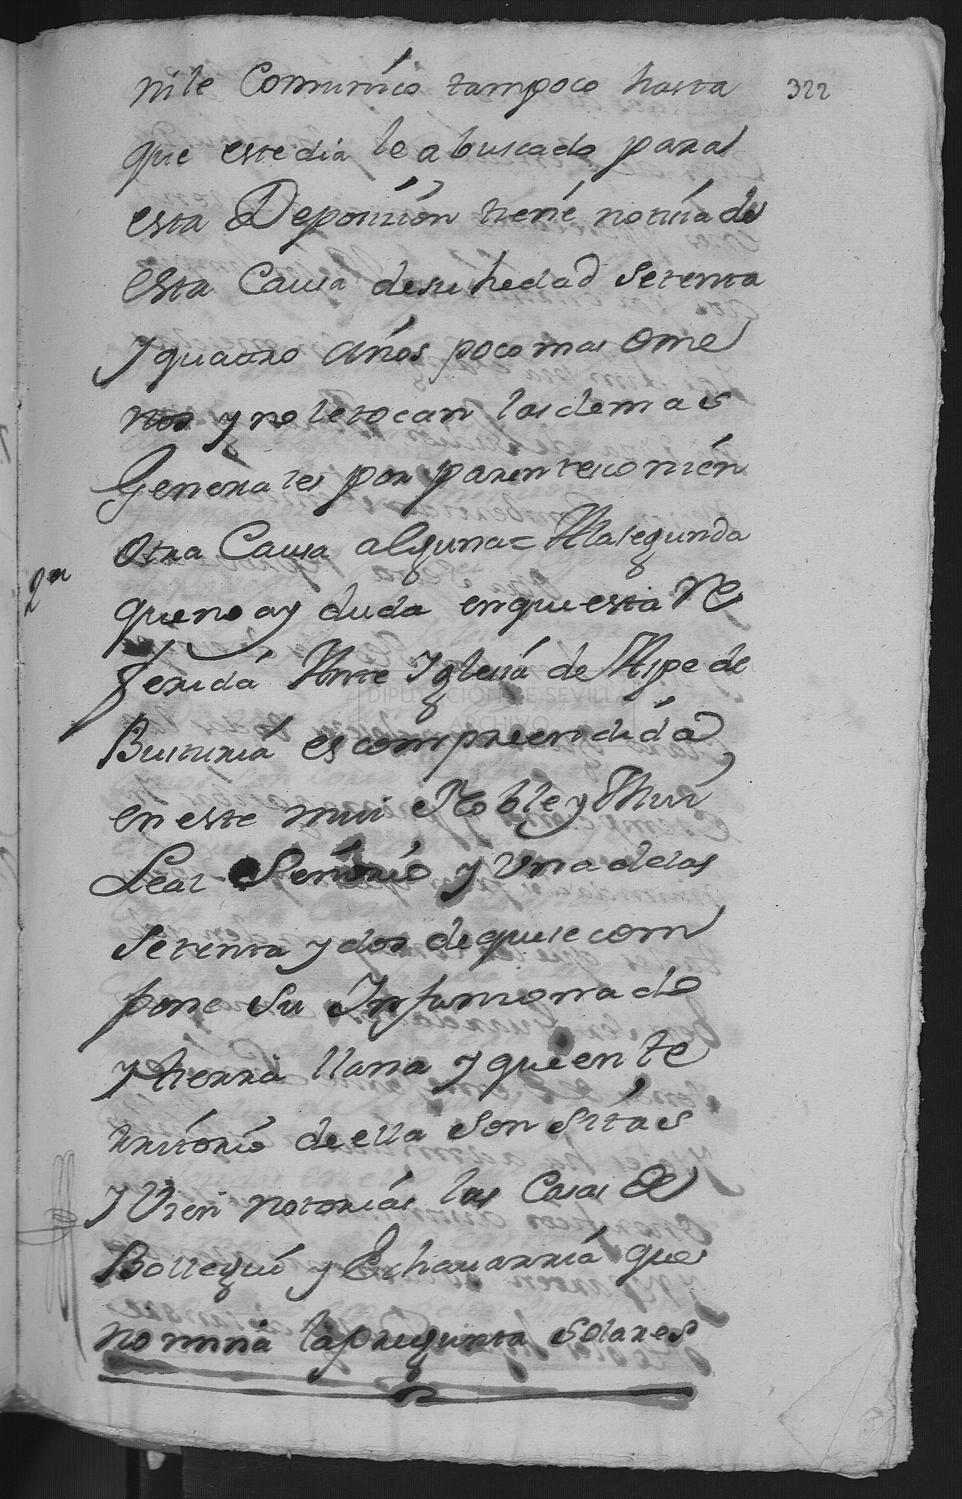 322
ni le Comunico tampoco hasta
que este dia le a buscado para
esta Deposizion tiene notizia de
esta Causa de su hedad Setenta
y quatro años poco mas ome
nos y no le tocan las demas
Generales por parentesco ni en
otra Causa alguna = A la segunda
2ª
que no ay duda en que esta Re
ferida Ante Iglesia de Axpe de
Busturia es comprendida
en este mui Noble y Mui
Leal Señorio y Una de las
Setenta y dos de que se com
pone su Infanzonado
y tierra llana y que en te
rritorio de ella son sitas
y Vien notorias las Casas de
Bollegui y Echavarria que
nomina la pregunta Solares
DIPUTACION DE SEVILLA
ARCHIVO